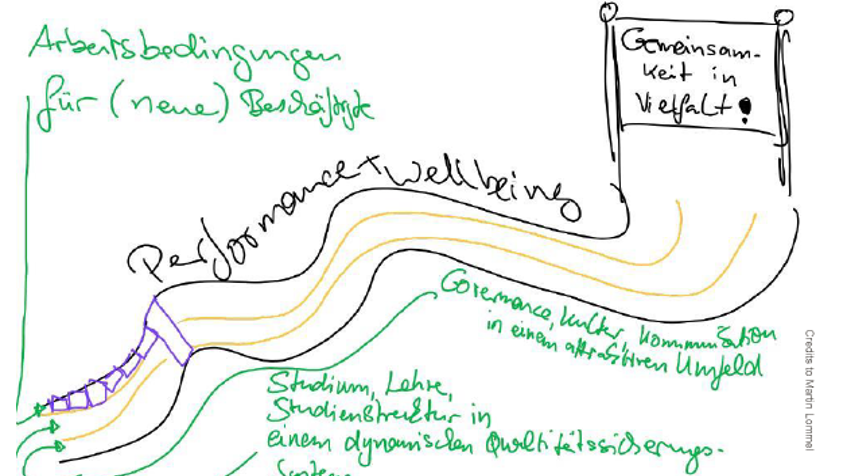 Arbeitsbedingungen
für (neue) Beschäftigte
Gemeinsam-
keit in
Vielfalt!
Performance + Wellbeing
Governance, Kultur, Kommunikation
in einem attraktiven Umfeld
Studium, Lehre,
Studienstruktur in
einem dynamischen Qualitätssicherungs-
Credits to Martin Lommel